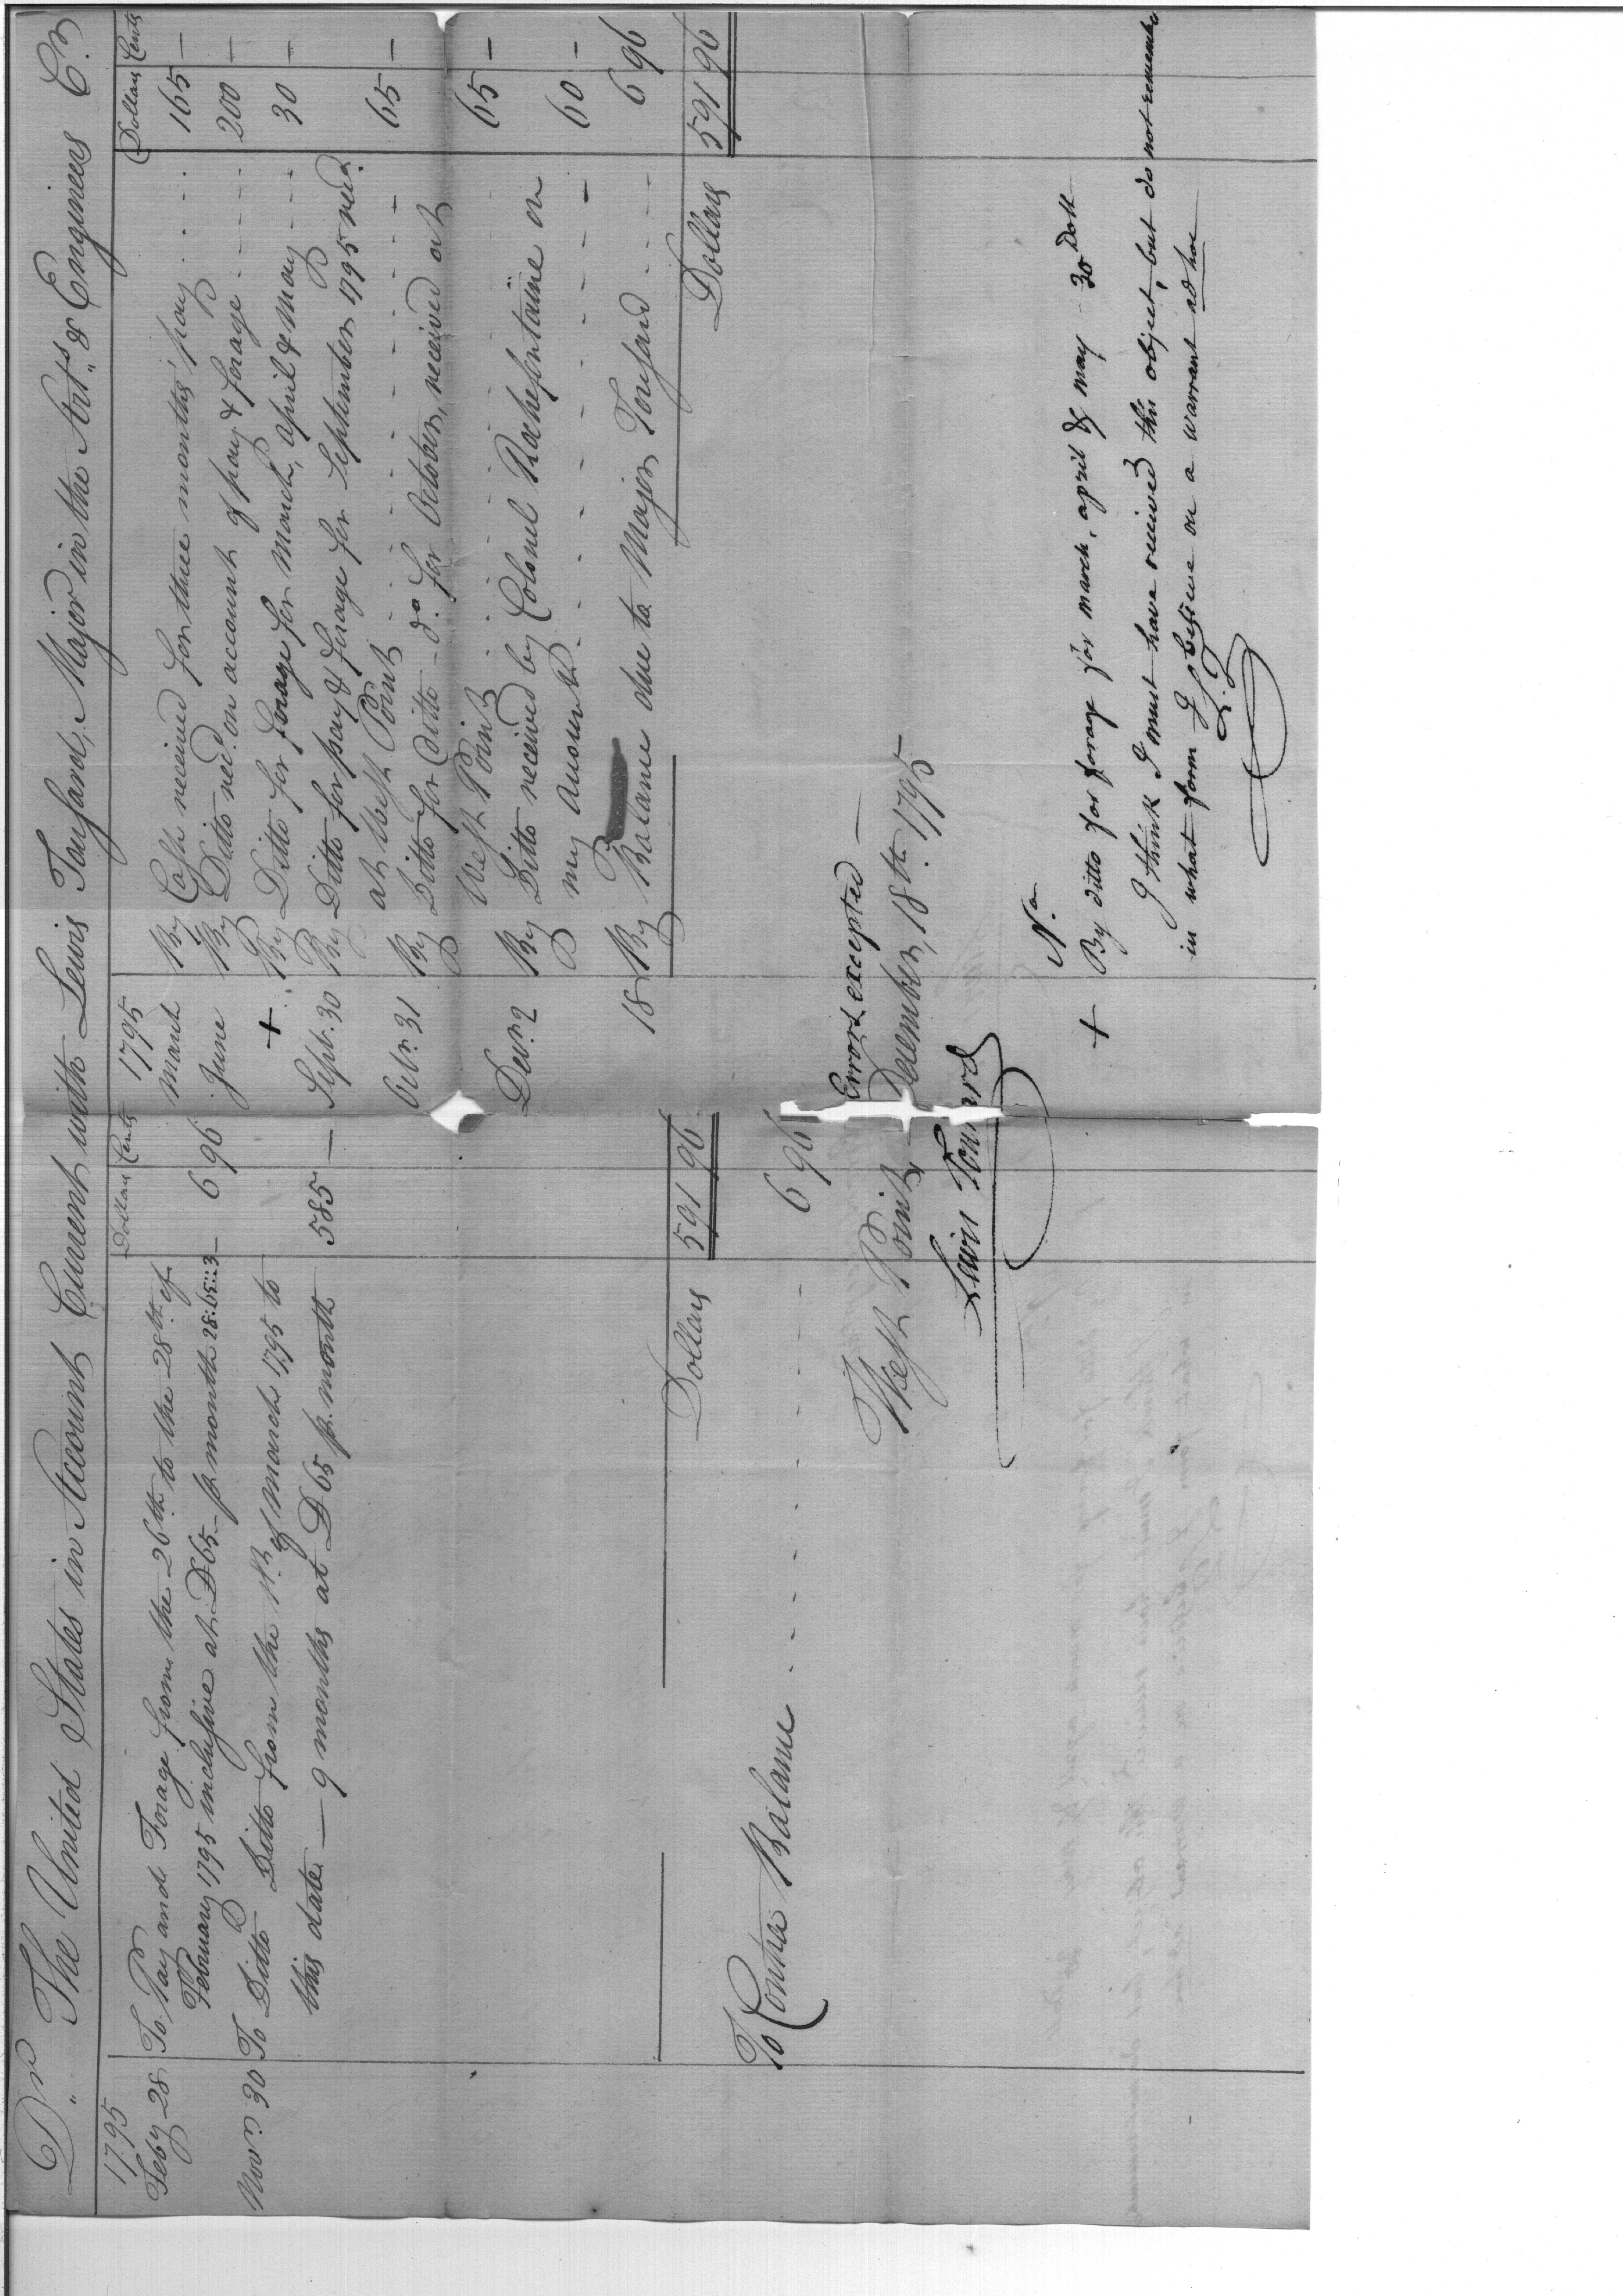 Dr. The United States in Account Current with Lewis Tousard, Major in the Arts. & Engineers Cr.
1795 Dollars Cents
Feby 28 To Pay and Forage from the 26th to the 28th of
February 1795 inclusive at D65 pr month 28:65::3 6 96
Novr. 30 To Ditto Ditto from the 1st. of march 1795 to
this date — 9 months at D 65 pr. month 585 —
Dollars 591 96
To Contra Balance 6 96
1795 Dollars Cents
March By Cash received for three months' pay 165 —
June By Ditto recd. on account of pay & forage 200 —
+ By Ditto for forage for March, april & May 30 —
Septr. 30 By Ditto for pay & forage for September 1795 recd.
at West Point 65 —
Octbr. 31 By Ditto for Ditto do. for October, received at
West Point 65 —
Decr. 2 By Ditto received by Colonel Rochefontaine on
my Account 60 —
18 By Balance due to Major Tousard 6 96
Dollars 591 96
Errors excepted —
West Point December, 18th. 1795
Lewis Tousard
Na
+ By ditto for forage for march, april & may - 30 Doll
I think I must have received this object, but do not remember
in what form I believe on a warrant ad hoc
L. T.